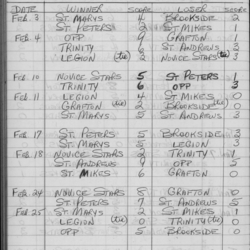 DATE WINNER SCORE LOSER SCORE
FEB. 3 ST. MARYS 4 BROOKSIDE 2
ST. PETERS 2 ST MIKES 1
FEB. 4 OPP GRAFTON 1
TRINITY 6 ST. ANDREWS 3
LEGION (tie) ST MARYS 2
FEB. 10 NOVICE STARS 5 ST PETERS 1
TRINITY 6 OPP 3
FEB. 11 LEGION 4 ST MIKES 0
GRAFTON (tie) 2 BROOKSIDE (tie)
ST MARYS 5 ST ANDREWS 3
FEB. 17 ST. PETERS 5 BROOKSIDE 3
ST. MARYS 5 LEGION 3
FEB. 18 NOVICE STARS 2 TRINITY 1
ST. ANDREWS OPP
ST. MIKES 6 GRAFTON 0
FEB. 24 NOVICE STARS 8 GRAFTON 0
ST. PETERS 7 ST. ANDREWS 5
FEB. 25 ST. MARYS 2 ST. MIKES 1
LEGION (tie) 0 TRINITY (tie) 0
OPP 5 BROOKSIDE 0